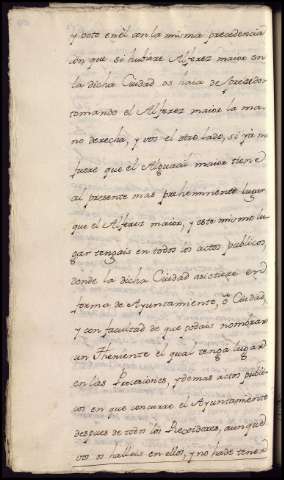 y voto en el con la misma precedencia
con que si hubiere Alferez maior en
la dicha Ciudad os haia de preceder
tomando el Alferez maior la ma
no derecha, y vos el otro lado, si ya no
fuere que el Alguacil maior tiene
al presente mas prehemínente lugar
que el Alferez maior, y este mismo lu
gar tengais en todos los actos publicos
donde la dicha Ciudad asistiere en
forma de Ayuntamiento, ó Ciudad,
y con facultad de que podais nombrar
un Theniente el qual tenga lugar
en las Procesiones, y demas actos publi
cos en que concurre el Ayuntamiento
despues de todos los Regidores, aunque
vos os halleis en ellos, y no ha de tener